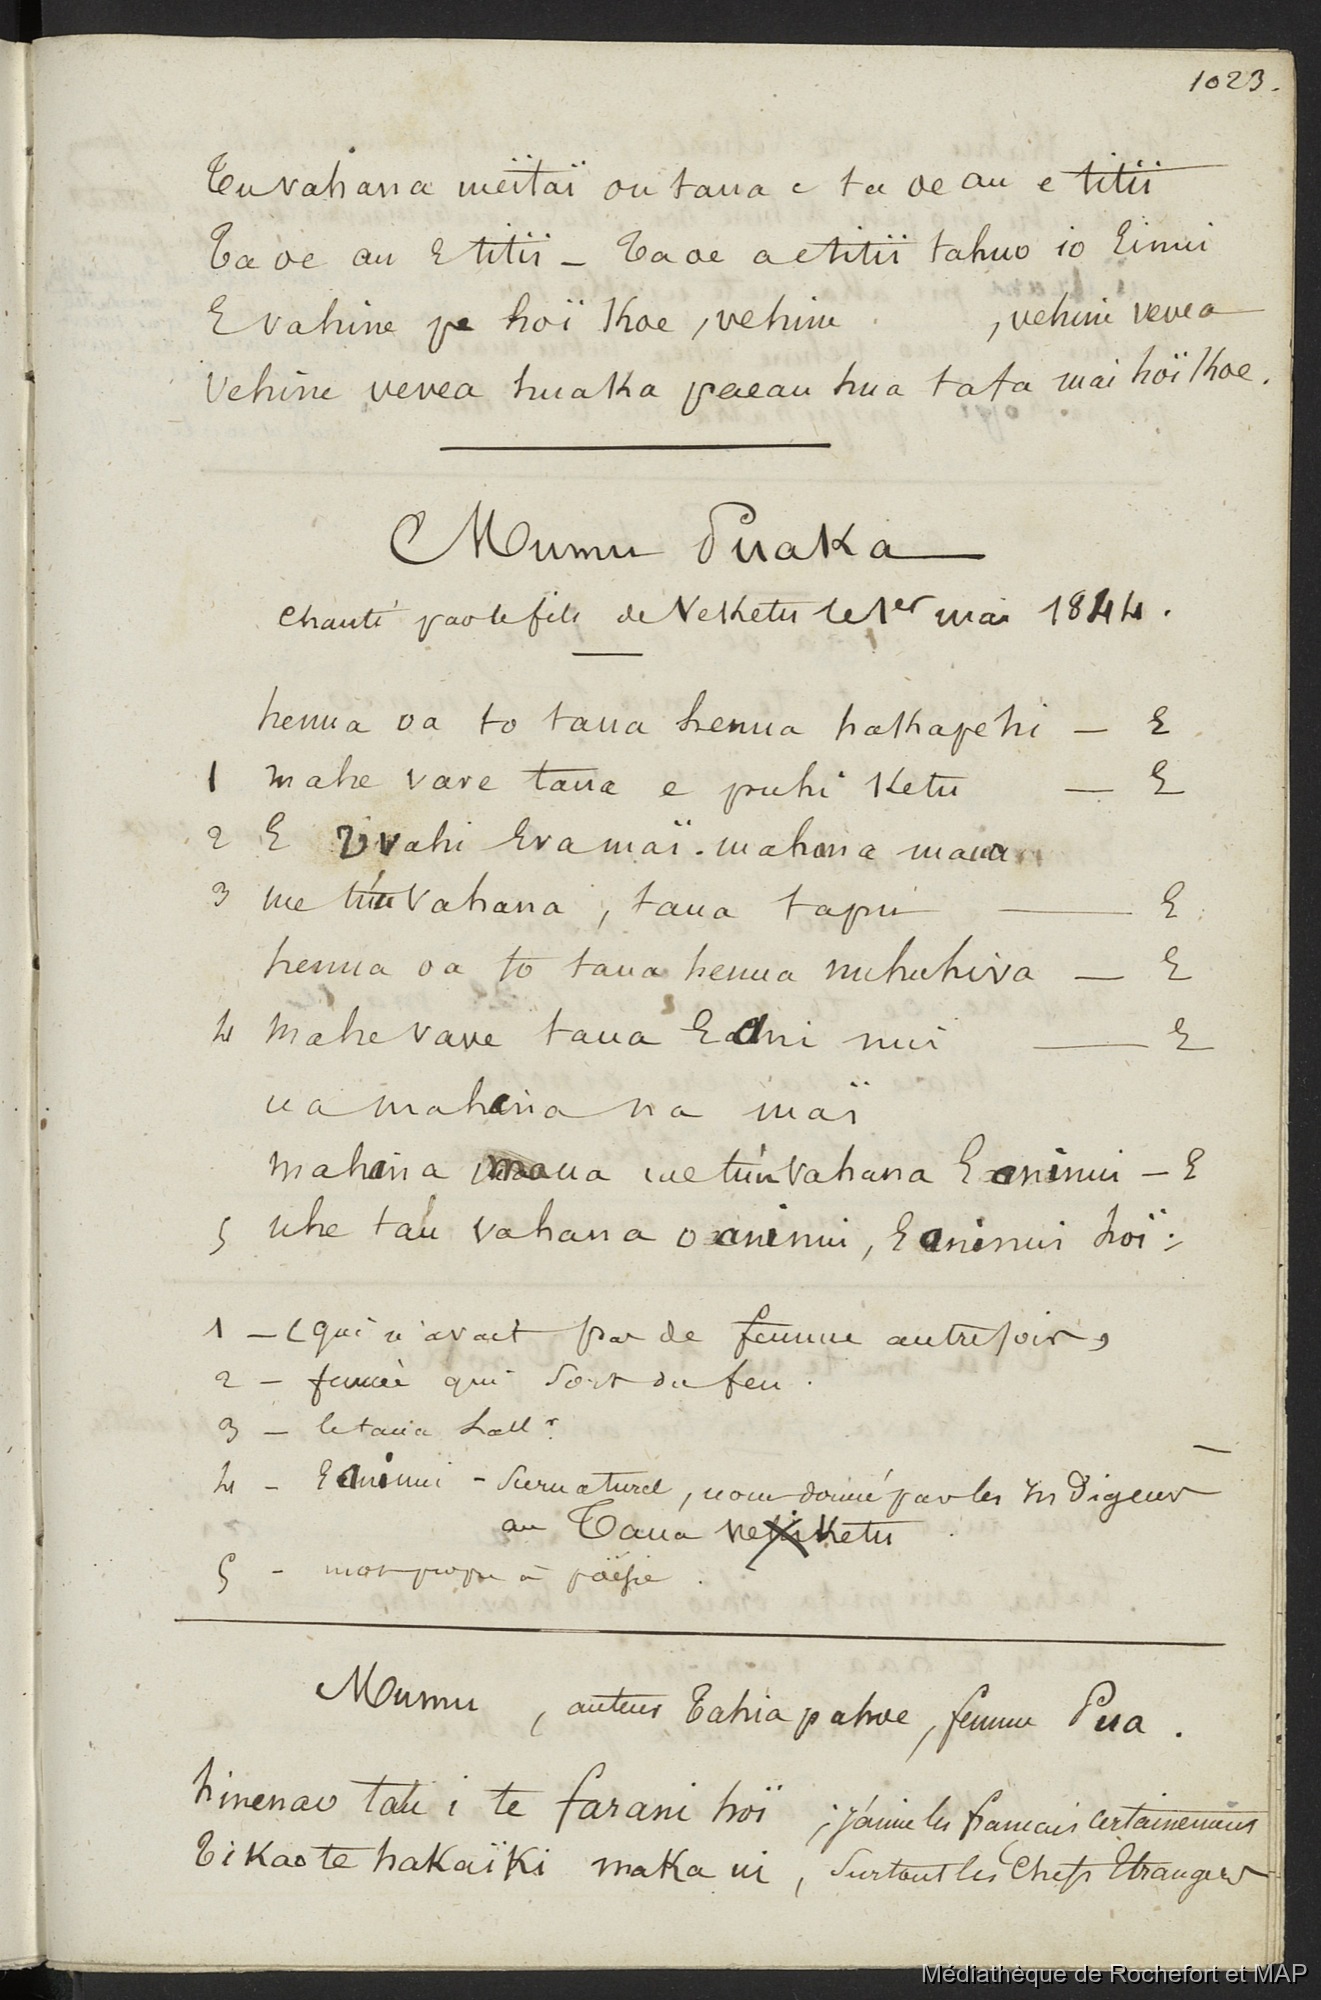 1023.
Tu vahana meïtaï ou taua e ta oe au e titii
Ta oe au E titii _ Ta oe a etitii tahuo io Einui
E vahine pe hoï Koe, vehine , vehine vevea
Vehine vevea huaka paeau hua tafa mai hoï Koe.
Mumu Puaka
chanté par le fils de Veketu le 1er mai 1844.
henua oa to taua henua hakapehi — E
1 mahe vave taua e puhi Ketu — E
2 E vahi Eva maï. mahina maua
3 me tiu vahana, taua tapu — E
henua oa to taua henua nuhuhiva — E
4 mahe vave taua Eani nui — E
ua mahina na maï
mahina maua me tiu vahana Eaninui — E
5 uhe tau vahana oaninui, Eaninui hoï :
1 — (qui n'avait pas de femme autrefois,
2 — fumée qui sort du feu.
3 — le taua
4 - Eaninui - surnaturel, nom donné par les Indigens
au Taua veketu
5 - mot propre à poësie.
Mumu, auteur Tahia pahoe, femme Pua.
hinenao tau i te farani hoï ; j'aime les français certainement
Ti Kao te hakaïki maka ui, surtout les Chefs Etrangers
Médiathèque de Rochefort et MAP